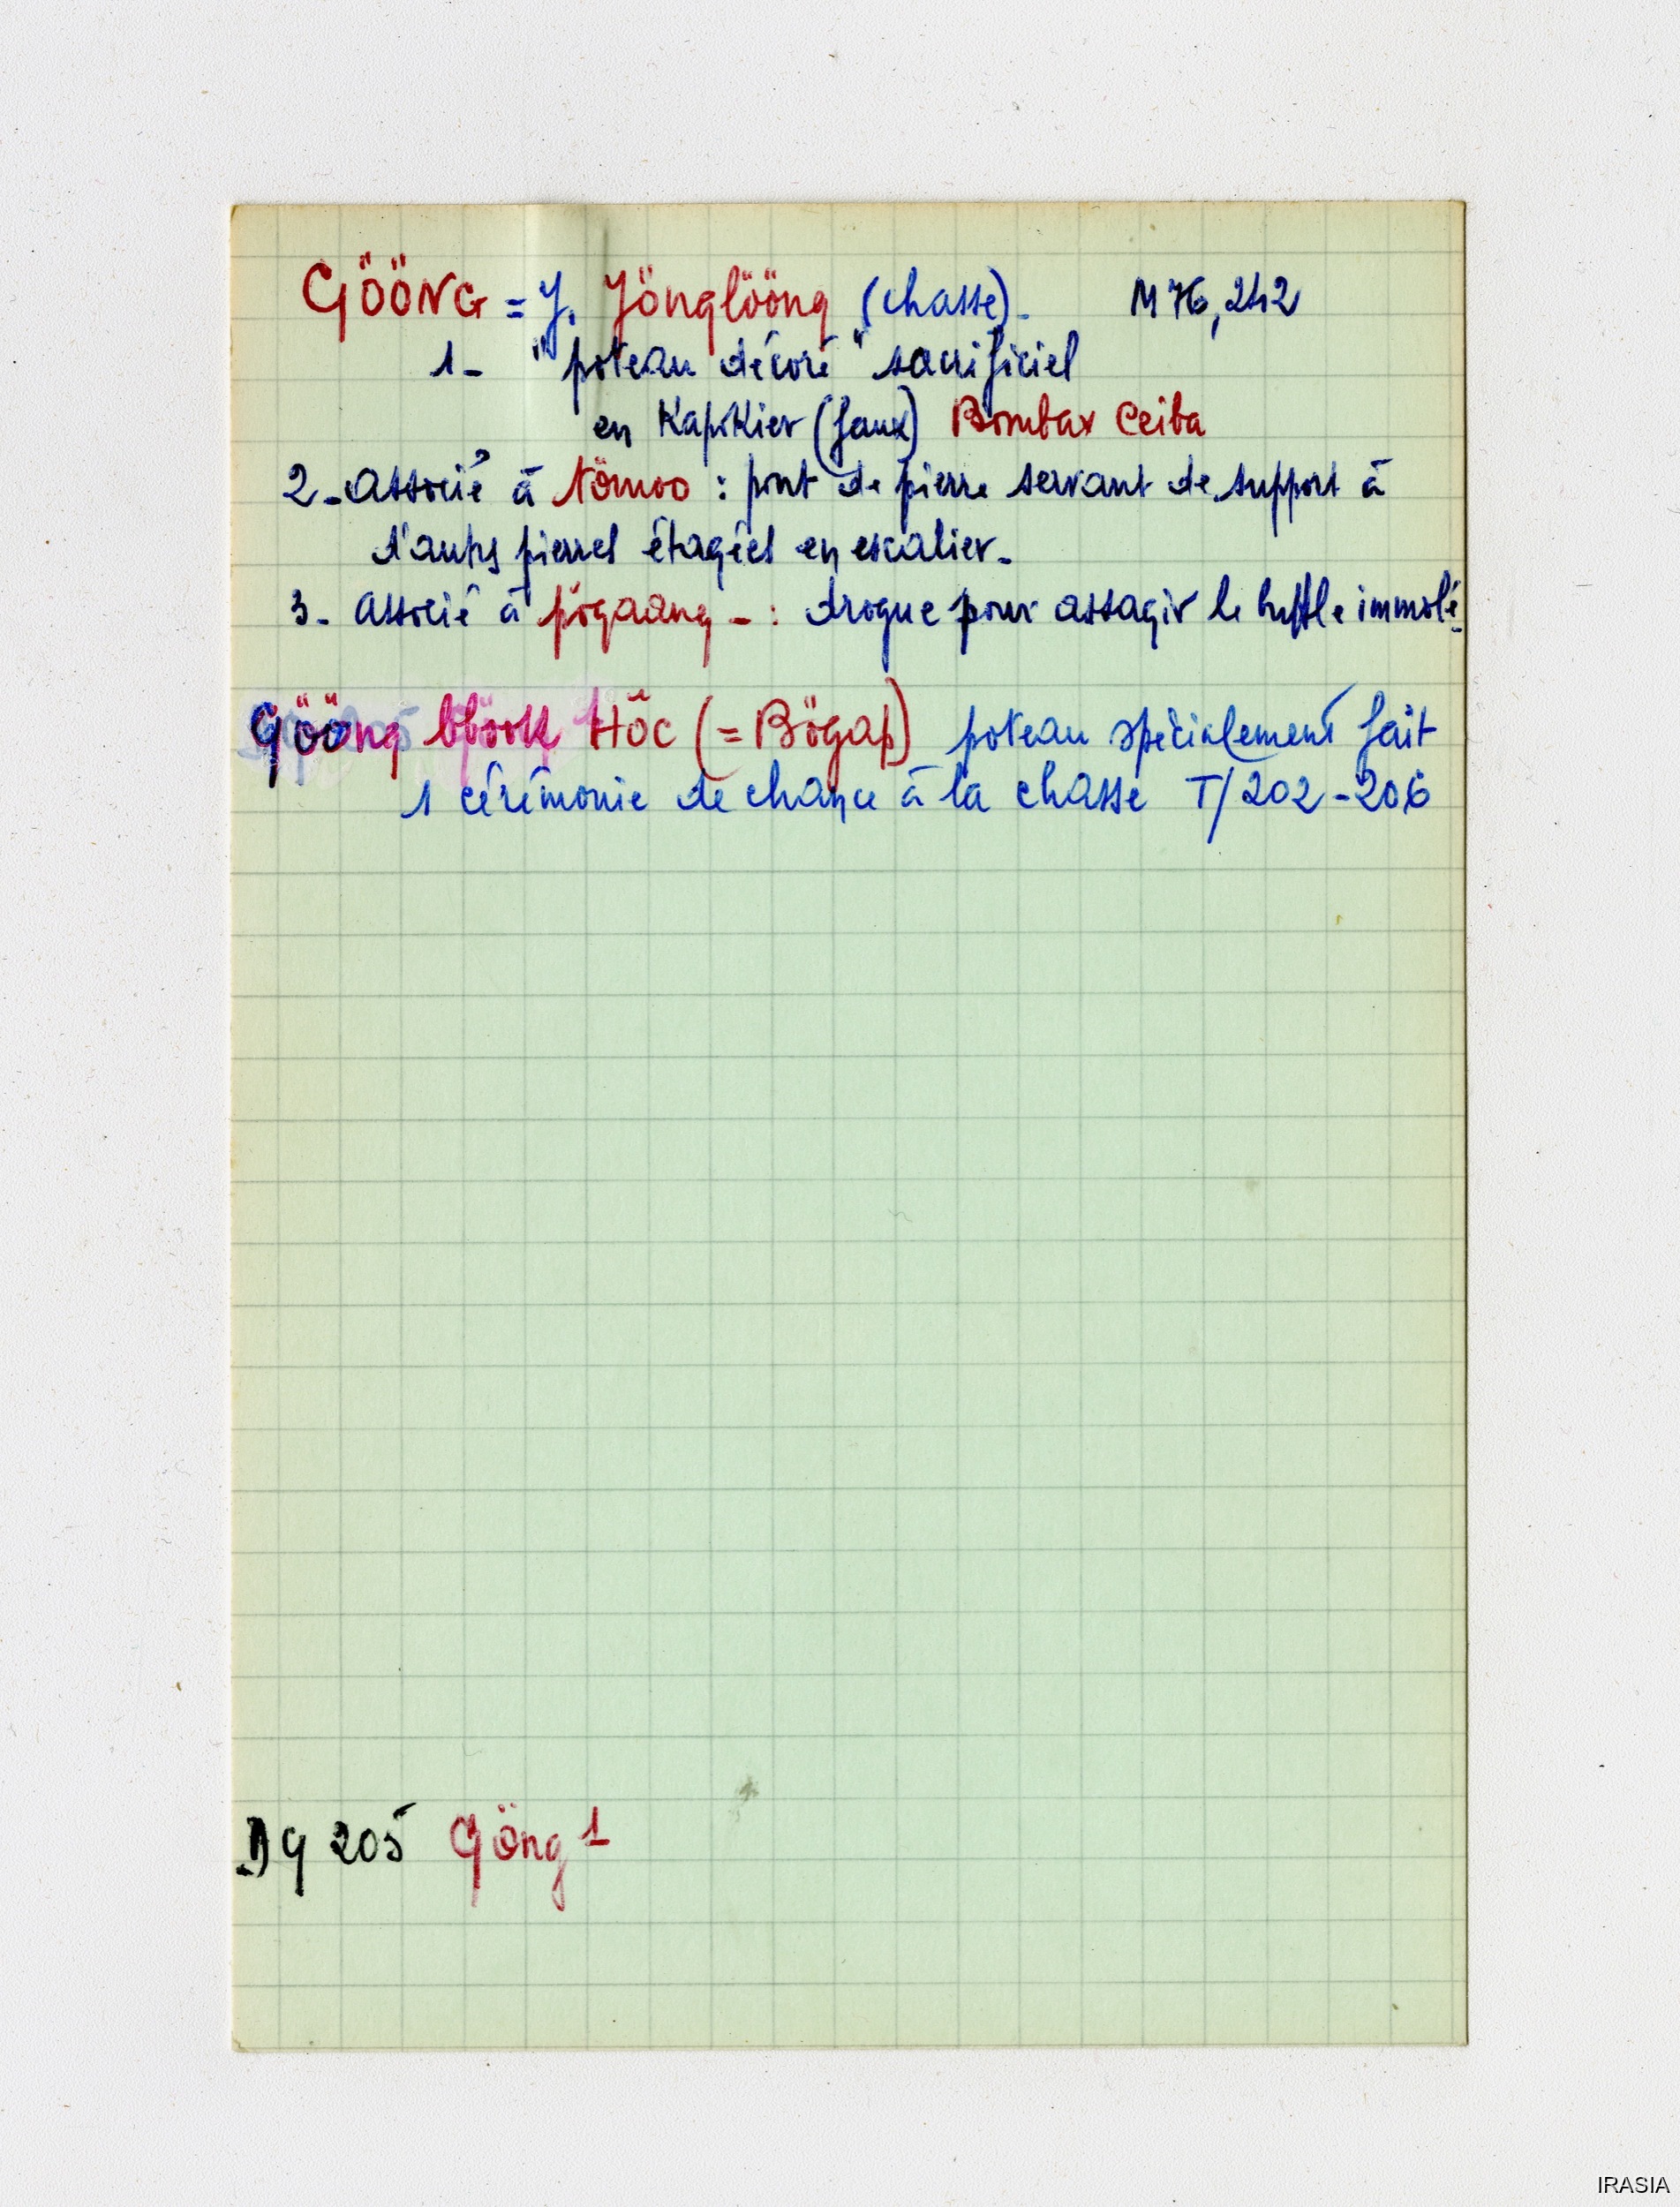 GÖÖNG = Y. Yönglööng (chasse). M 76, 242
1- "poteau décoré" sacrificiel
en Kapokier (faux) Bombax Ceiba
2- Associé à tömoo : pont de pierre servant de support à
d'autres pierres étagées en escalier.
3- Associé à pögaang - : drogue pour assagir le buffle immolé.
Gööng blöok HÖC (= Bögap) poteau spécialement fait
1 cérémonie de chance à la chasse T/202-206
DG 205 Göng 1
IRASIA